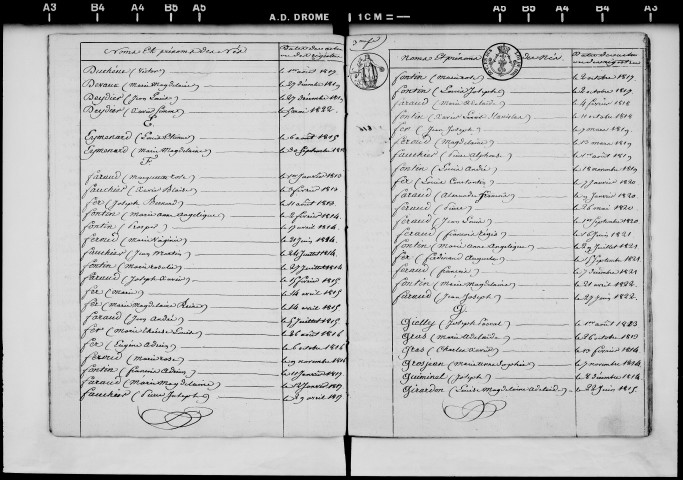 A3 B4 A4 B5 A5
A.D. DROME
1 CM =
A5 B5 A4 B4 A3
Noms Et prénoms des Nés
Duchêne (Victor) le 1er août 1819
Devaux (Marie Magdelaine) le 27 décembre 1819
Deydier (Jean Louis) le 27 décembre 1819
Deydier (Xavier) 1822
E
Eymonard (Louis) le 6 août 1815
Eymonard (Marie Magdelaine) le 30 septembre
F
Faraud (Marguerite Rose) le janvier 1813
Fauchier (Xavier Blaise) le 3 février 1813
Fer (Joseph Bernard) le 11 août 1813
Fontin (Marie Anne Angélique) le 2 février 1814
Fontin (Prosper) le avril 1814
Feroud (Marie Virginie) le 21 juin 1814
Fauchier (Jean Martin) le 24 juillet 1814
Fontin (Marie) le 27 juillet 1814
Faraud (Joseph Xavier) le février 1815
Fer (Marie) le 14 avril 1815
Fer (Marie Magdelaine Rose) le 14 avril 1815
Faraud (Jean André) le juillet 1815
Fer (Marie Thérèse Louise) le 26 août 1816
Fer (Eugène Adrien) le 6 octobre 1816
Feroud (Marie Rose) le 19 novembre 1816
Fontin (François Adrien) le 11 janvier 1817
Faraud (Marie Magdelaine) le janvier 1817
Fauchier (Pierre Joseph) le 29 avril 1817
Noms Et prénoms des Nés
Fontin (Marie Rose) le 2 octobre 1817
Fontin (Louis Joseph) le 2 octobre 1817
Faraud (Marie Adelaide) le 4 février 1818
Fontin (Xavier Stanislas) le 11 octobre 1818
Fer (Jean Joseph) le 7 mars 1819
Feroud (Magdelaine) le 10 mars 1819
Fauchier (Pierre Alphonse) le 1er août 1819
Fontin (Louis André) le 18 novembre 1819
Fer (Louis Constantin) le 17 janvier 1820
Faraud (Alexandre François) le janvier 1820
Faraud (Pierre) le 26 mai 1820
Faraud (Jean Louis) le 1er septembre 1820
Feraud (François Régis) le 6 juin 1821
Fontin (Marie Anne Angélique) le 29 juillet 1821
Fer (Ferdinand Auguste) le septembre 1821
Faraud (François) le 7 décembre 1821
Fontin (Marie Magdelaine) le 21 avril 1822
Faraud (Jean Joseph) le 27 juin 1822
G
Gielly (Joseph Pascal) le 1er août 1813
Gras (Marie Adelaide) le 26 octobre 1813
Gras (Charles Xavier) le 13 février 1814
Grosjean (Marie Anne Sophie) le 7 novembre 1814
Guiminel (Joseph) le 8 décembre 1814
Girardon (Louise Magdelaine Adelaide) le 22 juin 1815